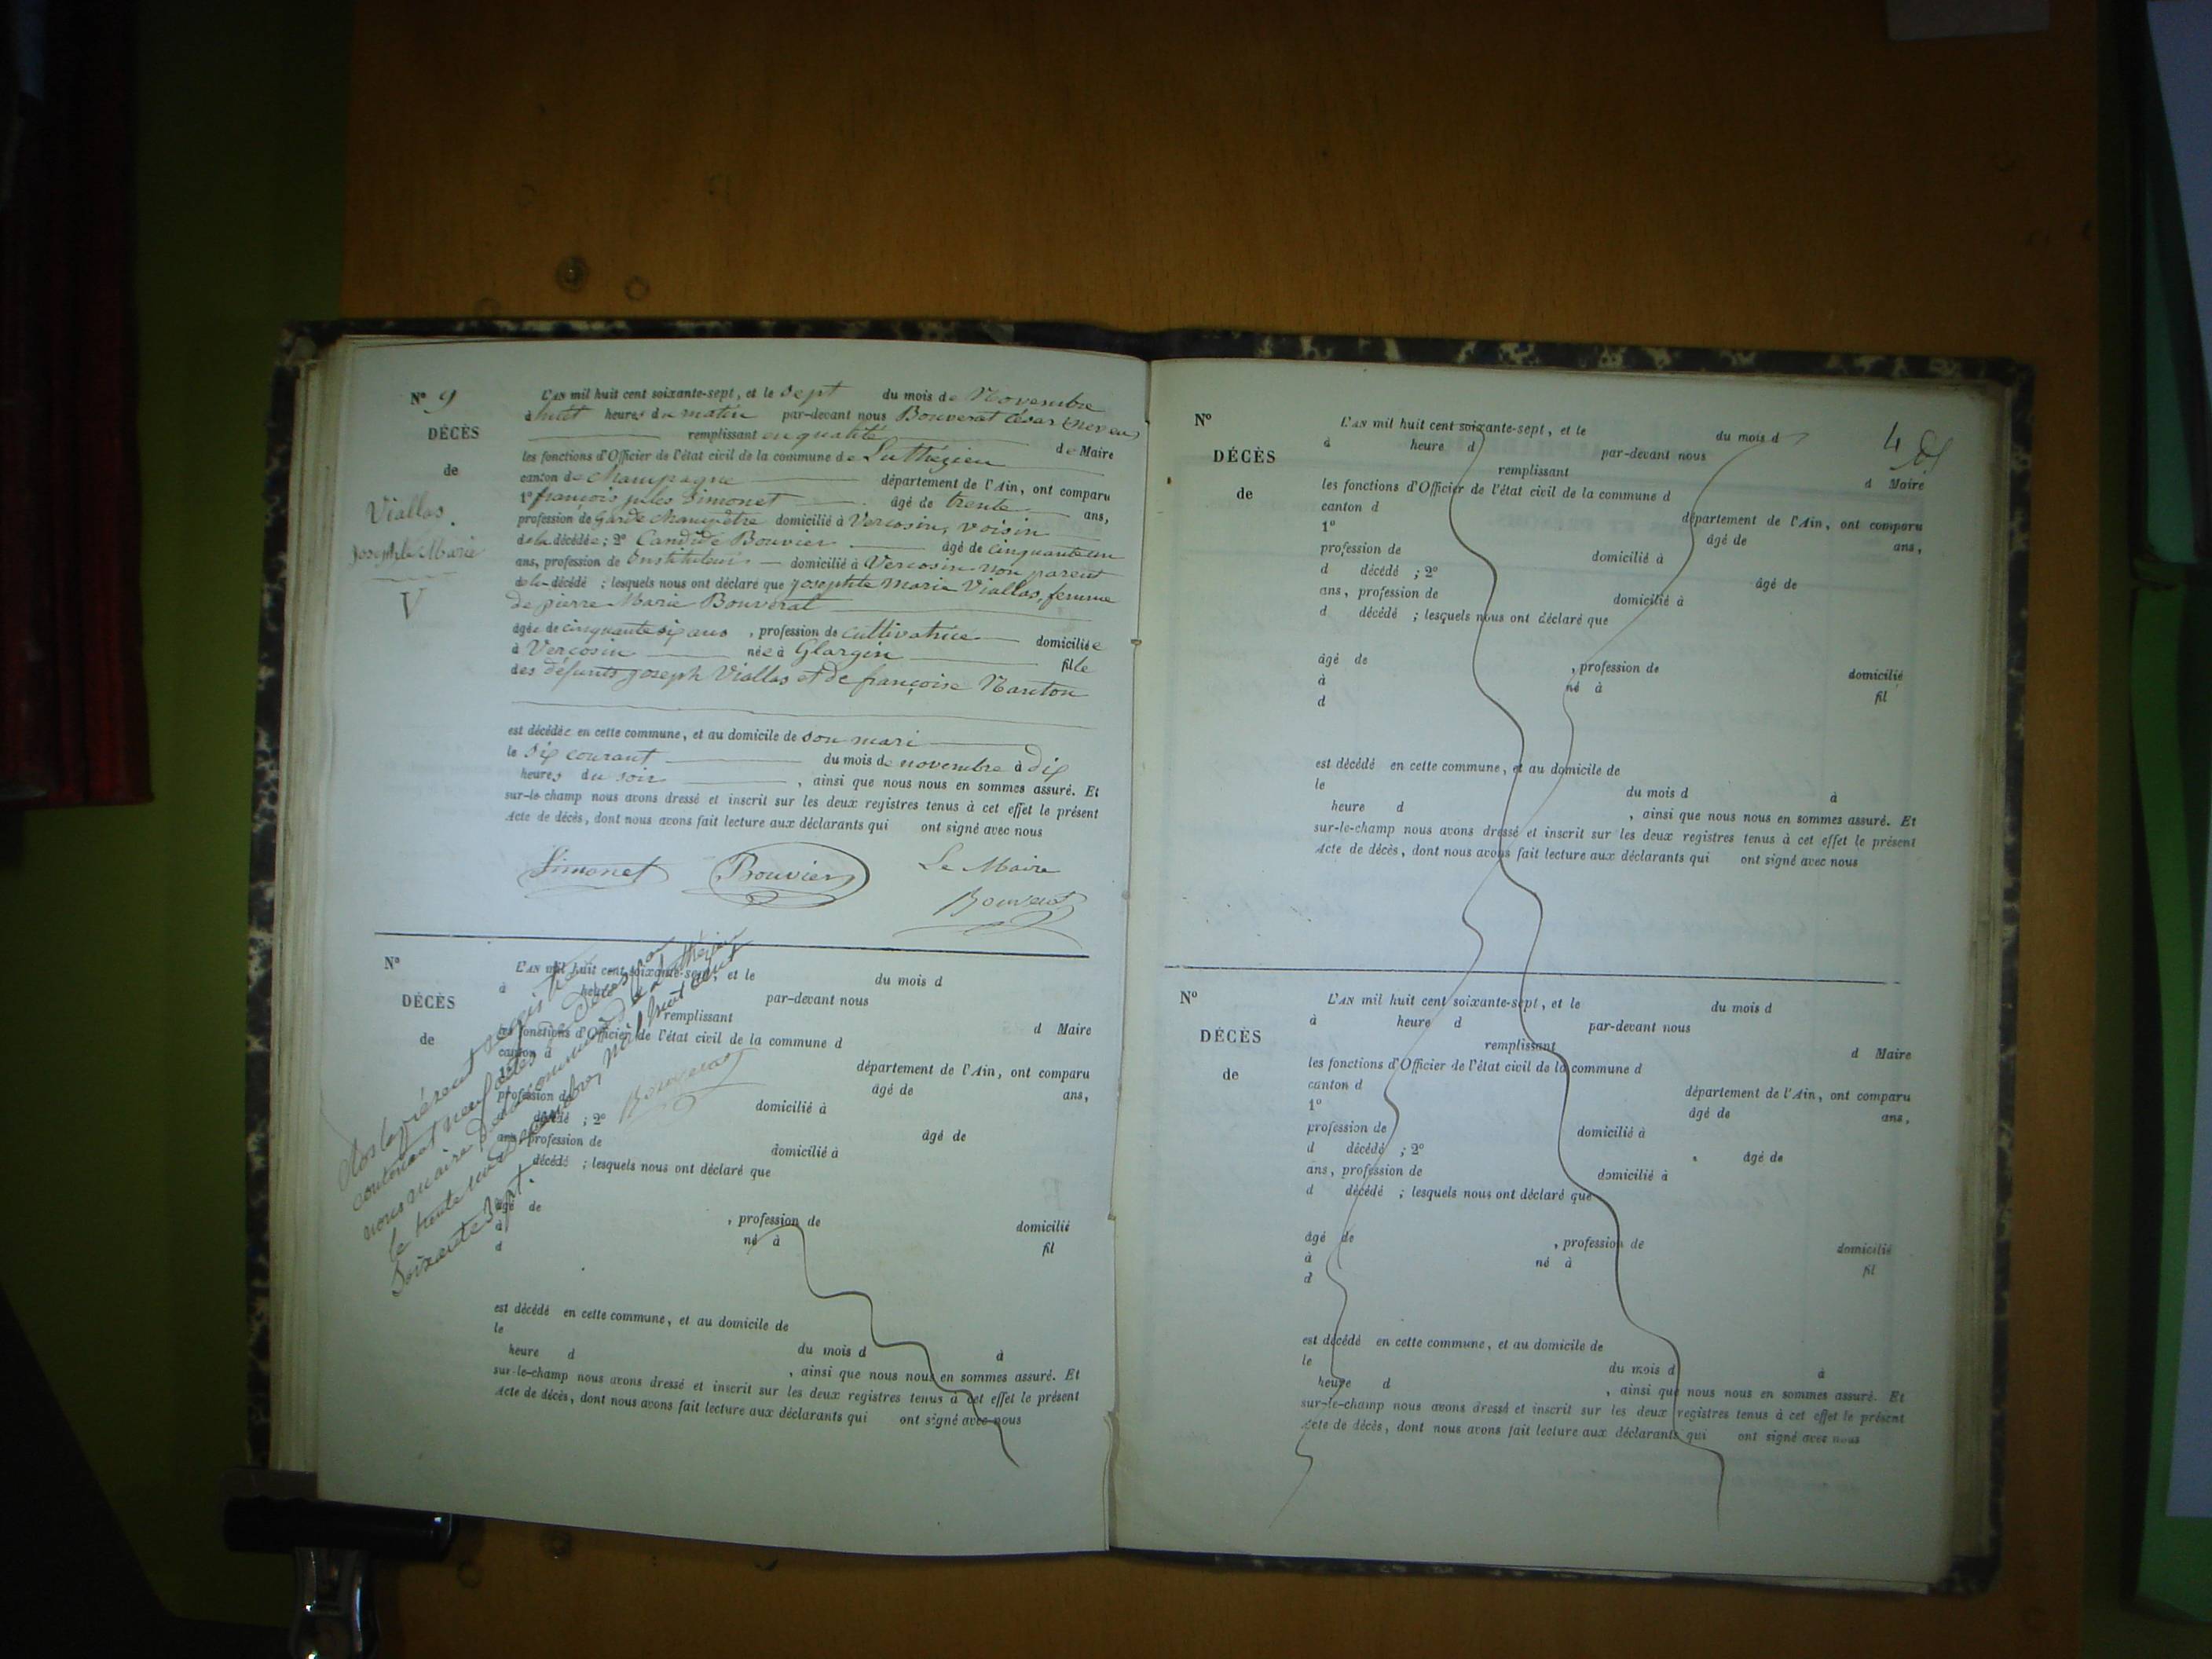 N° 9
DÉCÈS
de
Viallas
Josephte Marie
V
L'AN mil huit cent soixante-sept, et le sept du mois de Novembre
à huit heures du matin par-devant nous Bouverat César
remplissant en qualité de Maire
les fonctions d'Officier de l'état civil de la commune de Luthézieu
canton de Champagne département de l'Ain, ont comparu
1° françois jules Simonet âgé de trente ans,
profession de Garde Champêtre domicilié à Vercosin, voisin
de la décédée ; 2° Candide Bouvier âgé de cinquante un
ans, profession de Instituteur domicilié à Vercosin non parent
de la décédé ; lesquels nous ont déclaré que josephte Marie Viallas, femme
de pierre Marie Bouverat
âgée de cinquante six ans , profession de cultivatrice domiciliée
à Vercosin née à Glargin fille
des défunts joseph Viallas et de françoise Nanton
est décédée en cette commune, et au domicile de son mari
le six courant du mois de novembre à dix
heures du soir , ainsi que nous nous en sommes assuré. Et
sur-le-champ nous avons dressé et inscrit sur les deux registres tenus à cet effet le présent
Acte de décès, dont nous avons fait lecture aux déclarants qui ont signé avec nous
Simonet Bouvier Le Maire
Bouverat
N°
DÉCÈS
de
L'AN mil huit cent soixante-sept, et le du mois d
à heure par-devant nous
remplissant d Maire
les fonctions d'Officier de l'état civil de la commune d
canton d département de l'Ain, ont comparu
1° âgé de ans,
profession de domicilié à
décédé ; 2° âgé de
ans, profession de domicilié à
décédé ; lesquels nous ont déclaré que
âgé de , profession de domicilié
à né à fil
d
est décédé en cette commune, et au domicile de
le du mois d à
heure d , ainsi que nous nous en sommes assuré. Et
sur-le-champ nous avons dressé et inscrit sur les deux registres tenus à cet effet le présent
Acte de décès, dont nous avons fait lecture aux déclarants qui ont signé avec nous
Clos le présent
contenant neuf actes
nous maire de la commune de Luthézieu
le trente un Décembre, mil huit cent
Soixante Sept.
Bouverat
48
N°
DÉCÈS
de
L'AN mil huit cent soixante-sept, et le du mois d
à heure d par-devant nous
remplissant d Maire
les fonctions d'Officier de l'état civil de la commune d
canton d département de l'Ain, ont comparu
1° âgé de ans,
profession de domicilié à
d décédé ; 2° âgé de
ans, profession de domicilié à
d décédé ; lesquels nous ont déclaré que
âgé de , profession de domicilié
à né à fil
d
est décédé en cette commune, et au domicile de
le du mois d à
heure d , ainsi que nous nous en sommes assuré. Et
sur-le-champ nous avons dressé et inscrit sur les deux registres tenus à cet effet le présent
Acte de décès, dont nous avons fait lecture aux déclarants qui ont signé avec nous
N°
DÉCÈS
de
L'AN mil huit cent soixante-sept, et le du mois d
à heure d par-devant nous
remplissant d Maire
les fonctions d'Officier de l'état civil de la commune d
canton d département de l'Ain, ont comparu
1° âgé de ans,
profession de domicilié à
d décédé ; 2° âgé de
ans, profession de domicilié à
d décédé ; lesquels nous ont déclaré que
âgé de , profession de domicilié
à né à fil
d
est décédé en cette commune, et au domicile de
le du mois d à
heure d , ainsi que nous nous en sommes assuré. Et
sur-le-champ nous avons dressé et inscrit sur les deux registres tenus à cet effet le présent
Acte de décès, dont nous avons fait lecture aux déclarants qui ont signé avec nous